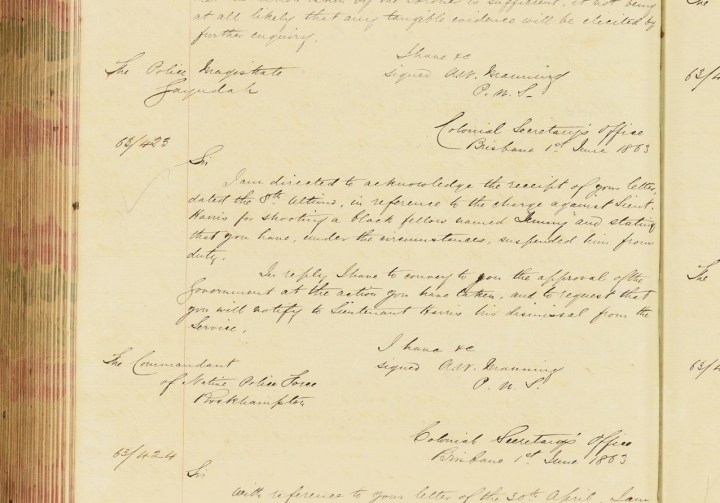 by the is sufficient, it not being
at all likely that any tangible evidence will be elicited by
further enquiry.
I have &c
signed A.W. Manning
P. U. S.
The Police Magistrate
Gayndah
Colonial Secretary's Office
Brisbane 1st June 1863
63/423
Sir
I am directed to acknowledge the receipt of your letter,
dated the 8th Ultimo, in reference to the charge against Lieut.
Harris for shooting a black fellow named and stating
that you have, under the circumstances, suspended him from
duty.
In reply I have to convey to you the approval of the
Government at the action you have taken, and to request that
you will notify to Lieutenant Harris his dismissal from the
Service.
I have &c
signed A.W. Manning
P. U. S.
The Commandant
of Native Police Force
Rockhampton
Colonial Secretary's Office
Brisbane 1st June 1863
63/424
Sir
With reference to your letter of the 30th April, I am
The
63/4
The
63/4